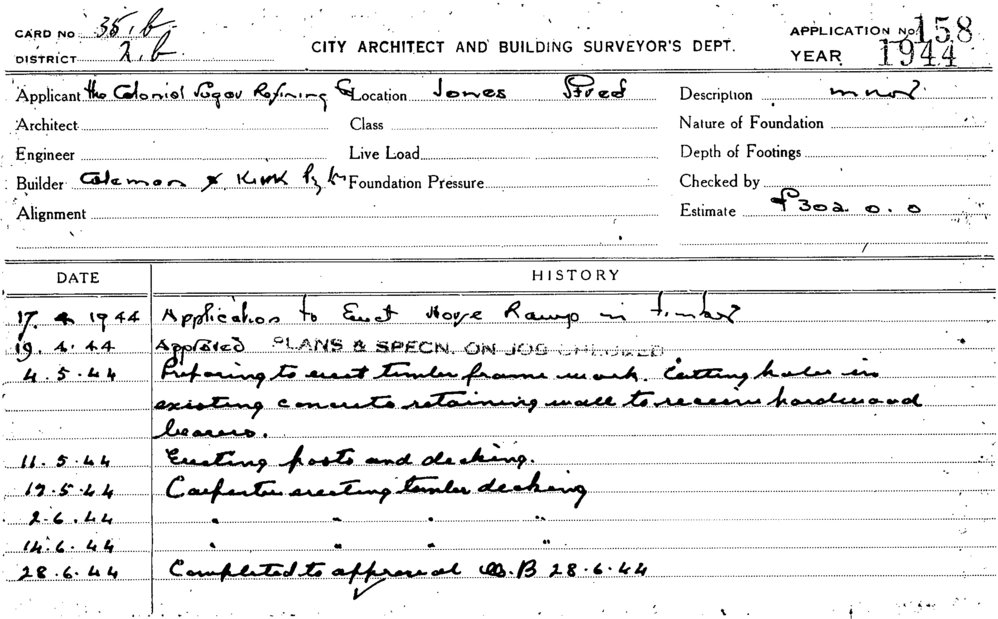 CARD NO 35.b
DISTRICT 2.b
CITY ARCHITECT AND BUILDING SURVEYOR'S DEPT.
APPLICATION NO. 158
YEAR 1944
Applicant the Colonial Sugar Refining Co Location Jones Street Description
Architect Class Nature of Foundation
Engineer Live Load Depth of Footings
Builder Coleman & Kirk Pty Foundation Pressure Checked by
Alignment Estimate £302.0.0
DATE HISTORY
17. 4 1944 Application to Erect Horse Ramp in timber
19.4.44 Approved PLANS & SPECN. ON JOB CHECKED
4.5.44 Preparing to erect timber frame work. Cutting holes in
existing concrete retaining wall to receive hardwood
bearers.
11.5.44 Erecting posts and decking.
19.5.44 Carpenter erecting timber decking
2.6.44 " " " "
14.6.44 " " " "
28.6.44 Completed to approval W.B 28.6.44